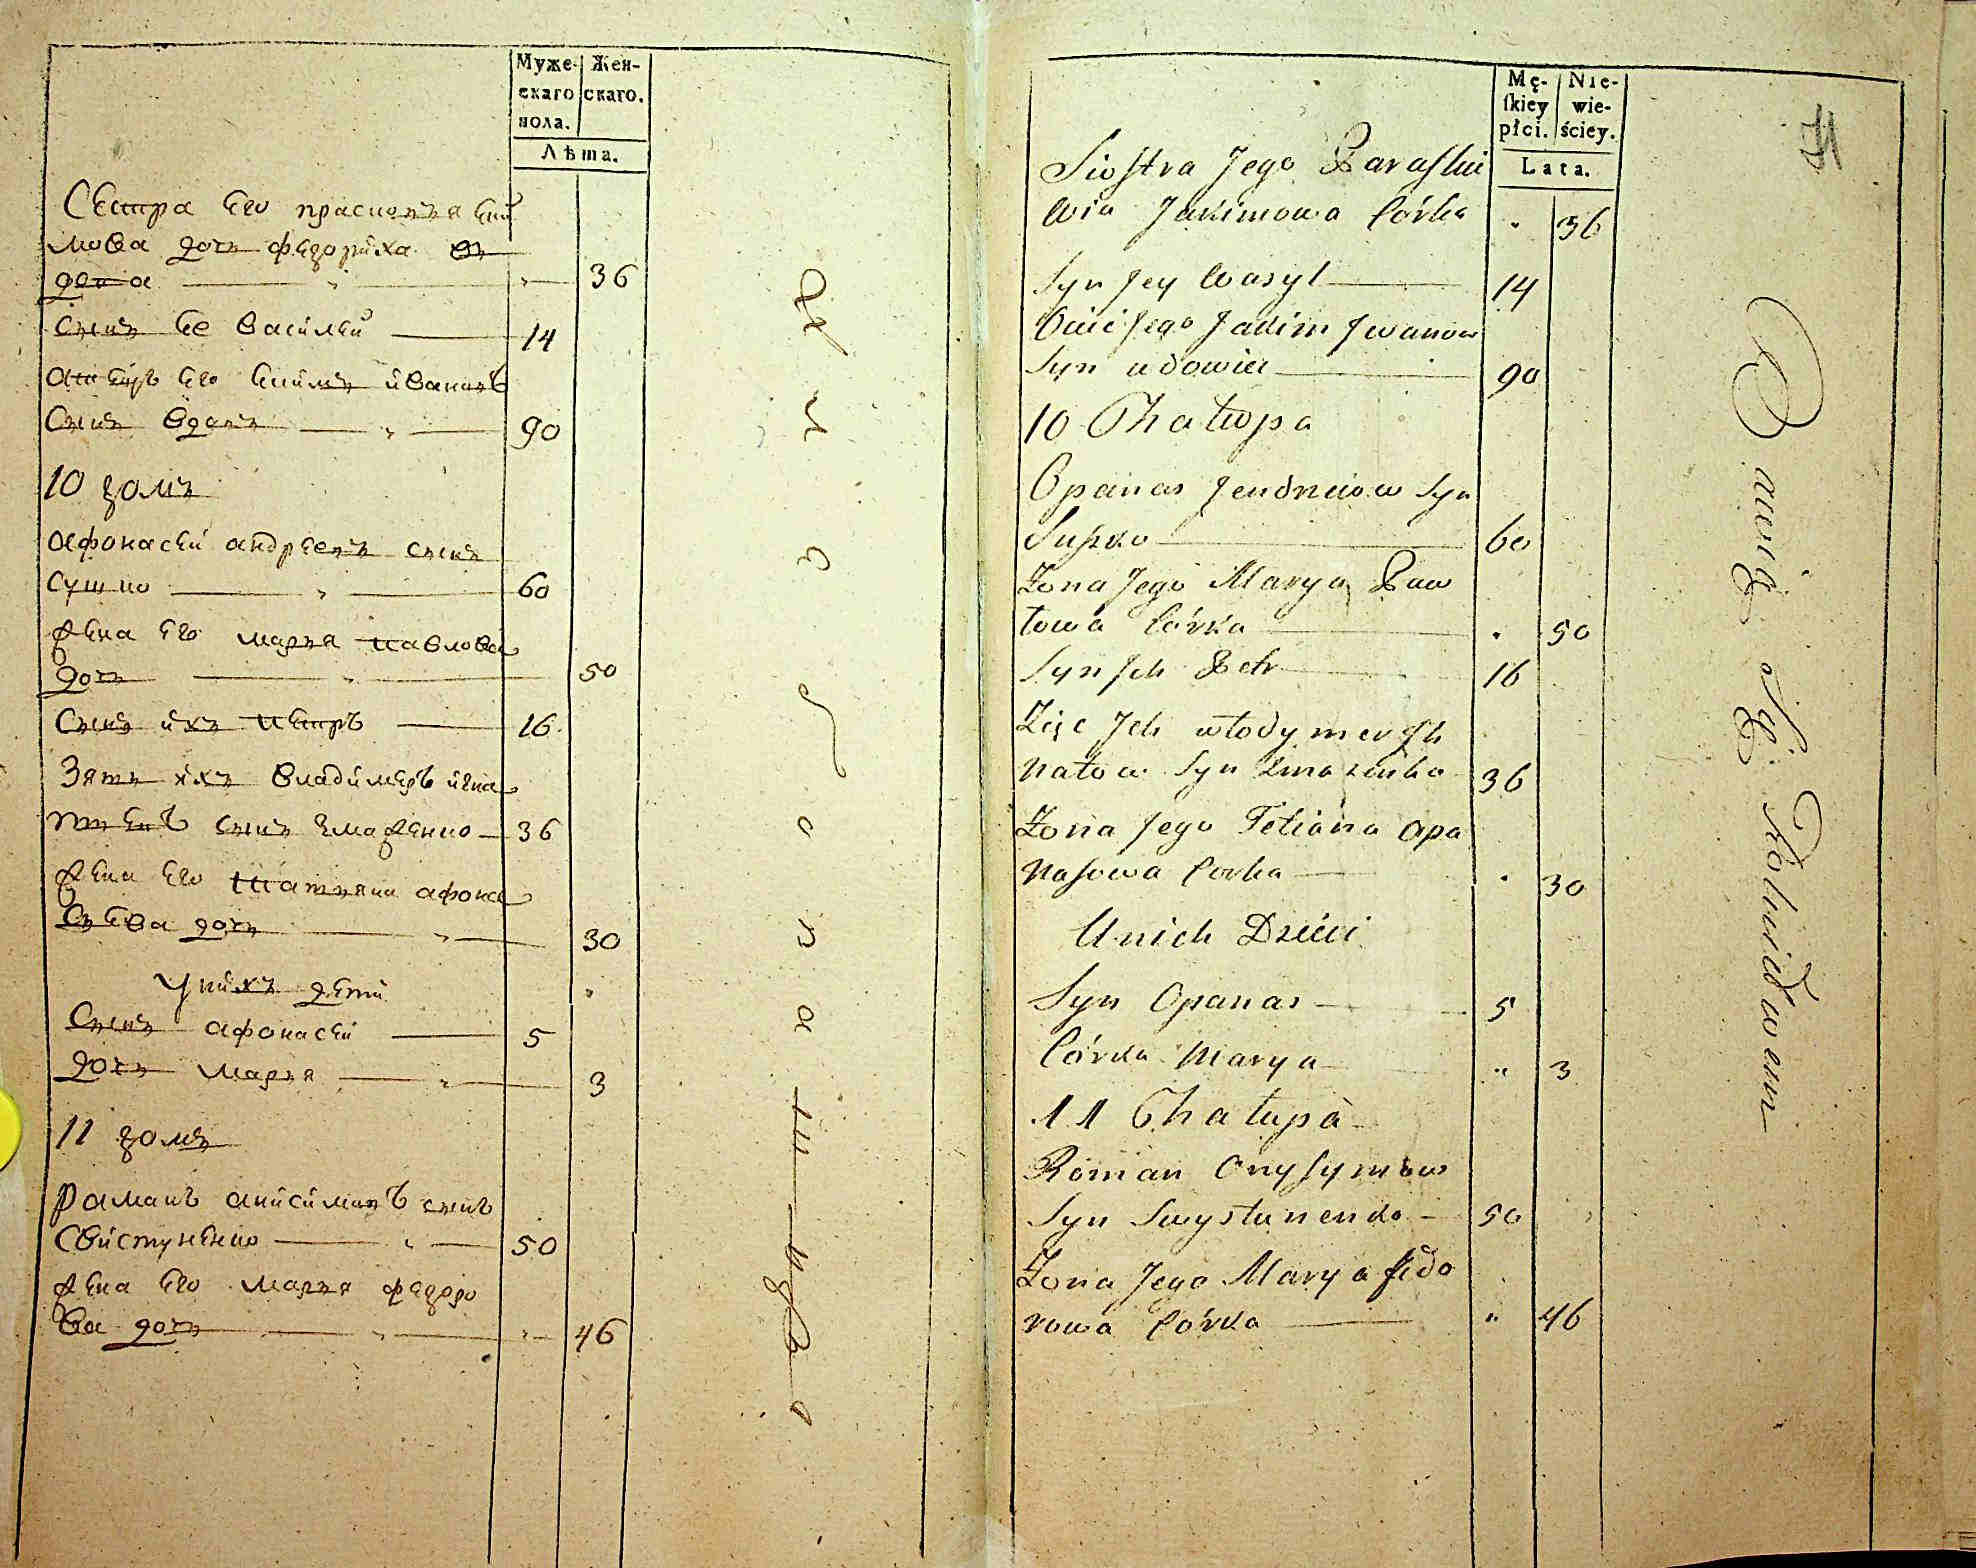 Муже-
скаго
пола.
Жен-
скаго.
Лѣта.
Сестра его
мова дочь федориха
36
Сынъ ее василей 14
отецъ его екимъ ивановъ
Сынъ вдовъ 90
10 домъ
афонасей андреевъ сынъ
сушко 60
жена его марья павлова
дочь 50
Сынъ ихъ петръ 16
Зять ихъ владимеръ игна
товъ сынъ змаженко 36
жена его татьяна афона
сьева дочь 30
у нихъ дети
Сынъ афонасей 5
дочь марья 3
11 домъ
романъ анисимовъ сынъ
Свистуненко 50
жена его марья федоро
ва дочь 46
Mę-
ſkiey
płci.
Nie-
wie-
ściey.
Lata.
Siostra Jego Paraskie
wia Jakimowa Córka 36
Syn Jey Wasyl 14
Jego Jakim Jwanow
Syn udowiec 90
10 Chałupa
Opanas Jendrieiow Syn
Suszko 60
Żona Jego Marya Paw
łowa Córka 50
Syn Jch Petr 16
Zięć Jch włodymer Jh
natow Syn 36
Żona Jego Tetiana Opa
nasowa Corka 30
U nich Dzieci
Syn Opanas 5
Córka Marya 3
11 Chałupa
Roman Onysymow
Syn Swystunenko 50
Żona Jego Marya Fedo
rowa Córka 46
Dawid